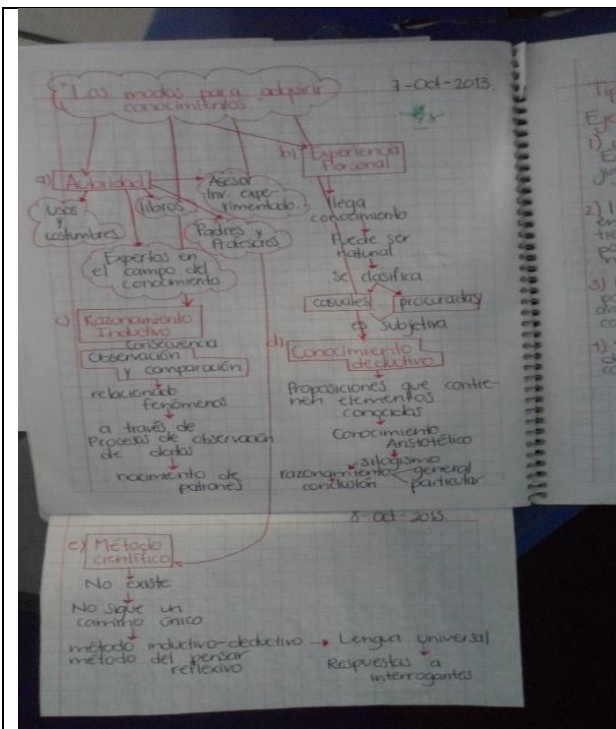 "Los modos para adquirir
conocimientos
7-Oct-2013
a) Autoridad
Usos
y
costumbres
libros
Asesor
Inv. expe-
rimentado
Padres y
Profesores
Expertos en
el campo del
conocimiento
b) Experiencia
Personal
llega
conocimiento
Puede ser
natural
se clasifica
casuales
procuradas
es subjetiva
c) Razonamiento
Inductivo
Consecuencia
Observación
y comparación
relacionado
fenómenos
a través de
Procesos de observación
de datos
nacimiento de
patrones
d) Conocimiento
deductivo
Proposiciones que contie-
nen elementos
conocidos
Conocimiento
Aristotélico
silogismo
razonamiento general
conclusión particular
8-Oct-2013
e) Método
científico
No existe
No sigue un
camino único
método inductivo-deductivo → Lengua universal
método del pensar
reflexivo
Respuestas a
interrogantes
Tip
Eje
1)
2)
3)
4)